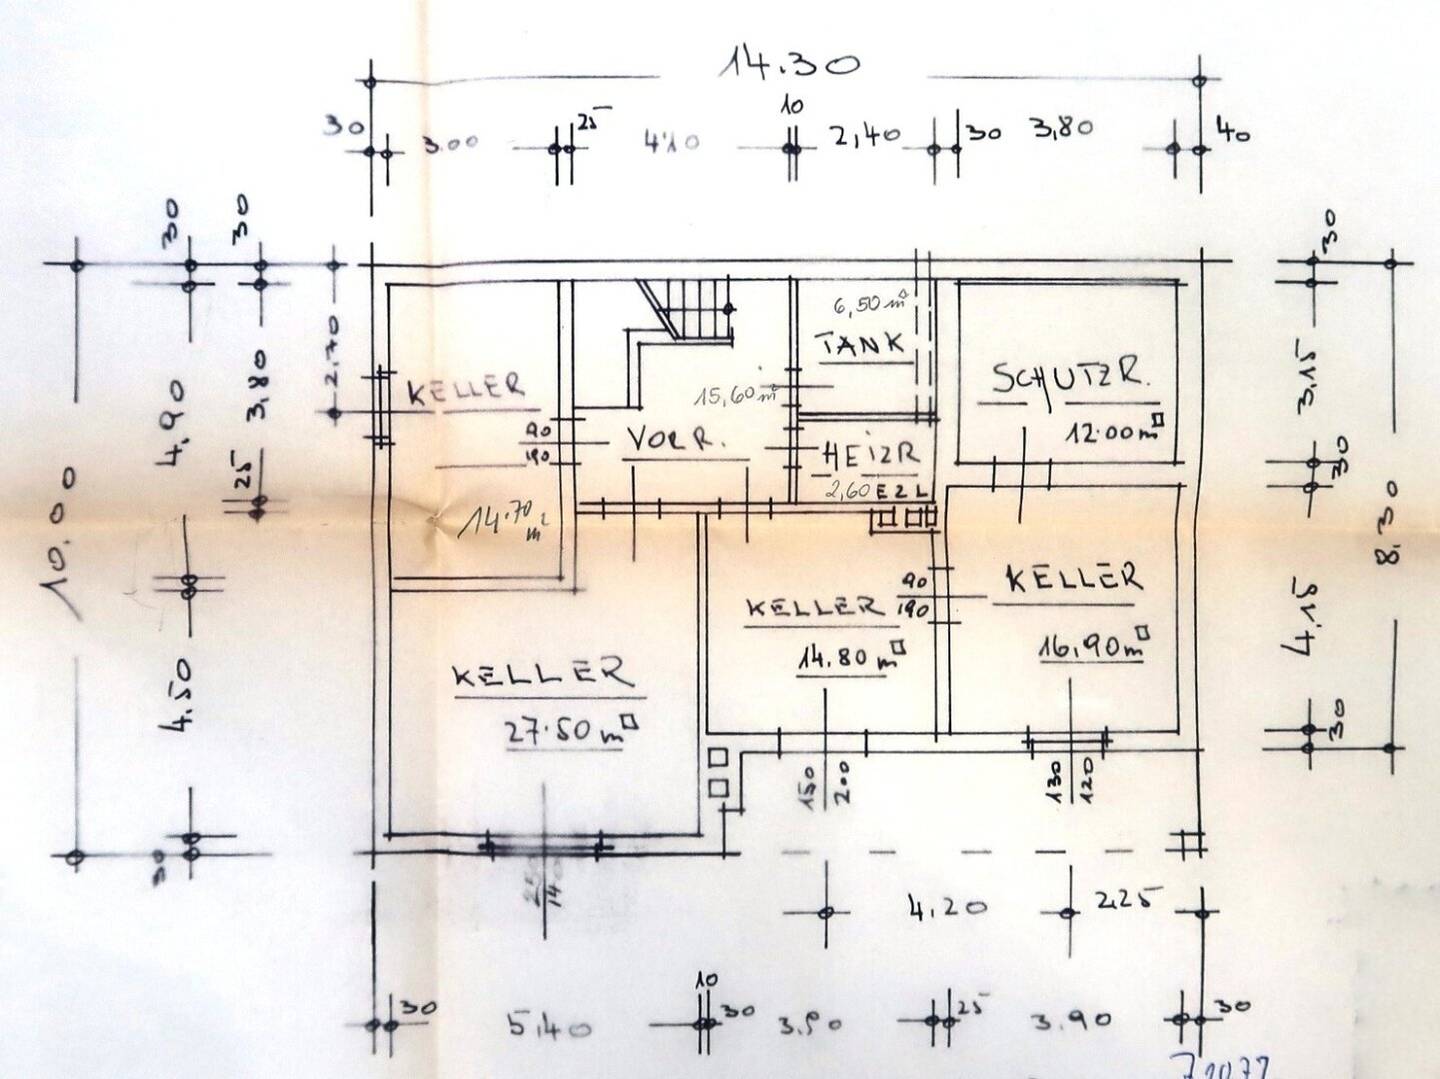 14.30
10
30 3.00 25 4.10 2,40 30 3,80 40
30 30 30
2,70
6,50 m²
TANK
KELLER
SCHUTZR.
12.00 m□
3,80
4,90
3.15
15,60 m²
VORR.
90
190
HEIZR
2,60 EZL
25
30
14.70
m²
10.00
8,30
KELLER
14.80 m□
90
190
KELLER
16,90 m□
4.15
KELLER
27.50 m□
4.50
30
150
200
130
120
30
140
4,20 2,25
10
30 5,40 30 25 3.90 30